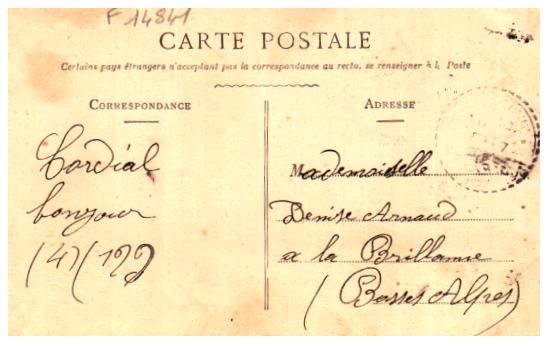 F 14841
CARTE POSTALE
Certains pays étrangers n'acceptant pas la correspondance au recto, se renseigner à la Poste
CORRESPONDANCE
ADRESSE
Cordial
bonjour
Mademoiselle
Denise Arnaud
a la Brillanne
(Basses Alpes)